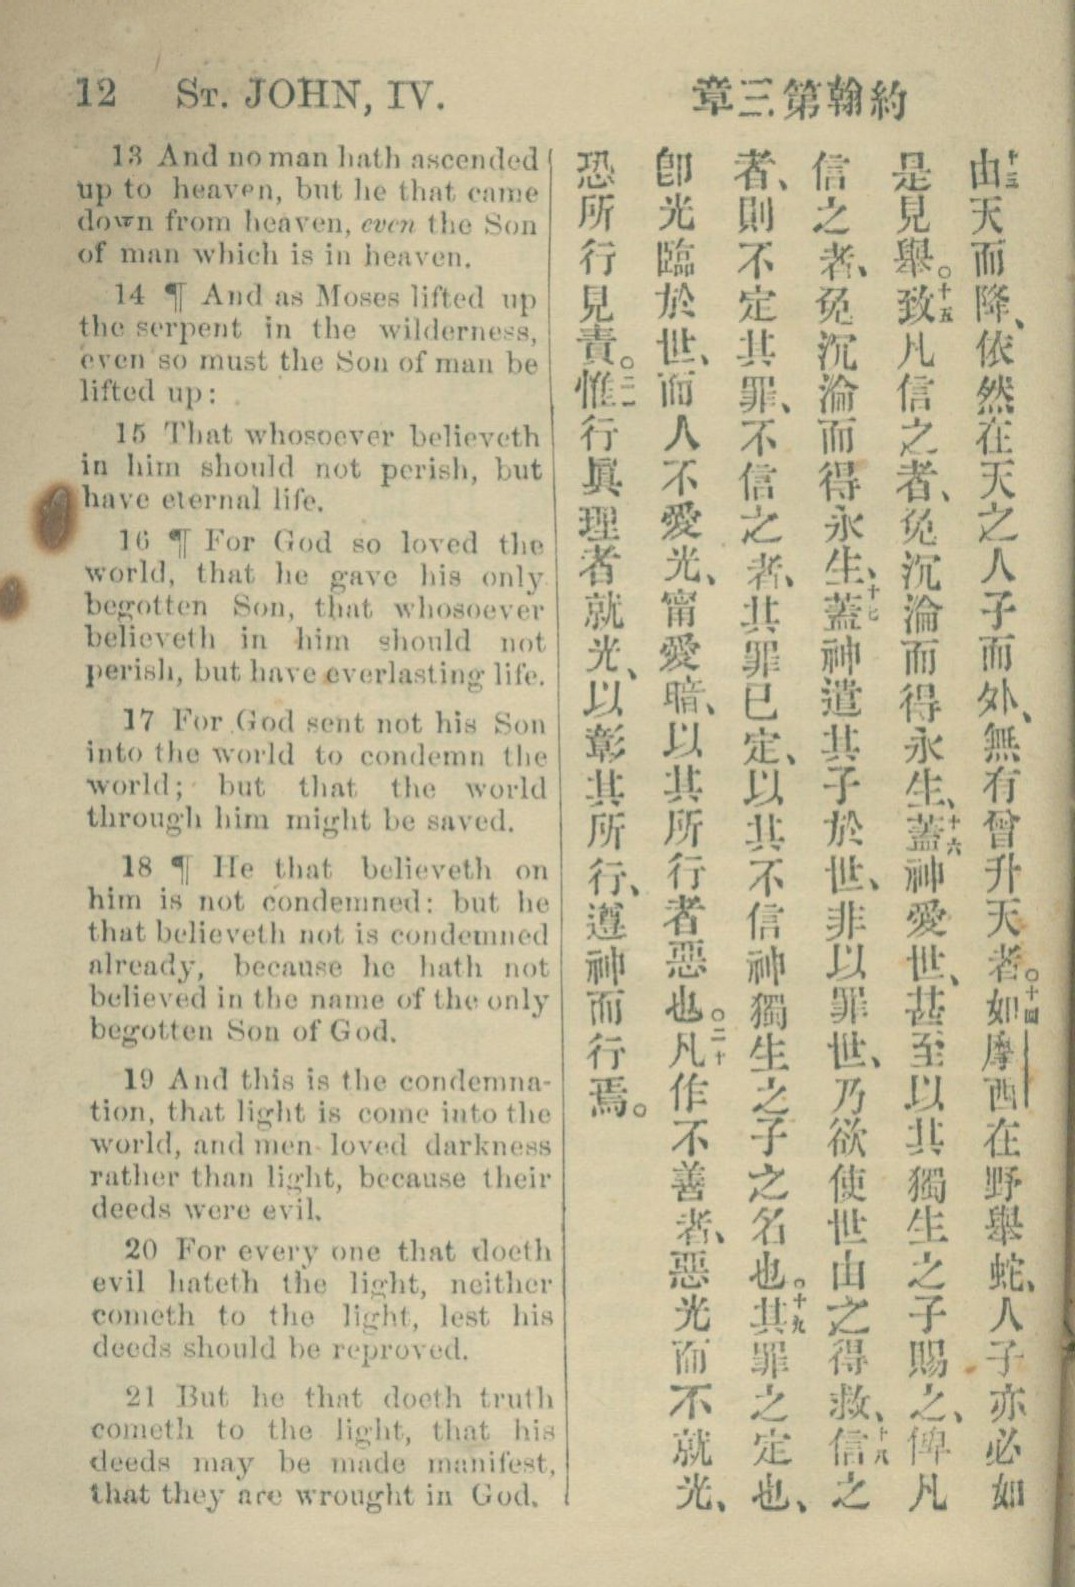 12 ST. JOHN, IV.
約翰第三章
13 And no man hath ascended
up to heaven, but he that came
down from heaven, even the Son
of man which is in heaven.
14 ¶ And as Moses lifted up
the serpent in the wilderness,
even so must the Son of man be
lifted up:
15 That whosoever believeth
in him should not perish, but
have eternal life.
16 ¶ For God so loved the
world, that he gave his only
begotten Son, that whosoever
believeth in him should not
perish, but have everlasting life.
17 For God sent not his Son
into the world to condemn the
world; but that the world
through him might be saved.
18 ¶ He that believeth on
him is not condemned: but he
that believeth not is condemned
already, because he hath not
believed in the name of the only
begotten Son of God.
19 And this is the condemna-
tion, that light is come into the
world, and men loved darkness
rather than light, because their
deeds were evil.
20 For every one that doeth
evil hateth the light, neither
cometh to the light, lest his
deeds should be reproved.
21 But he that doeth truth
cometh to the light, that his
deeds may be made manifest,
that they are wrought in God.
十三由天而降、依然在天之人子而外、無有曾升天者。十四如摩西在野舉蛇、人子亦必如
是見舉。十五致凡信之者、免沉淪而得永生、十六蓋神愛世、甚至以其獨生之子賜之、俾凡
信之者、免沉淪而得永生、十七蓋神遣其子於世、非以罪世、乃欲使世由之得救、十八信之
者、則不定其罪、不信之者、其罪已定、以其不信神獨生之子之名也。十九其罪之定也、
卽光臨於世、而人不愛光、甯愛暗、以其所行者惡也。二十凡作不善者、惡光而不就光、
恐所行見責。二一惟行眞理者就光、以彰其所行、遵神而行焉。